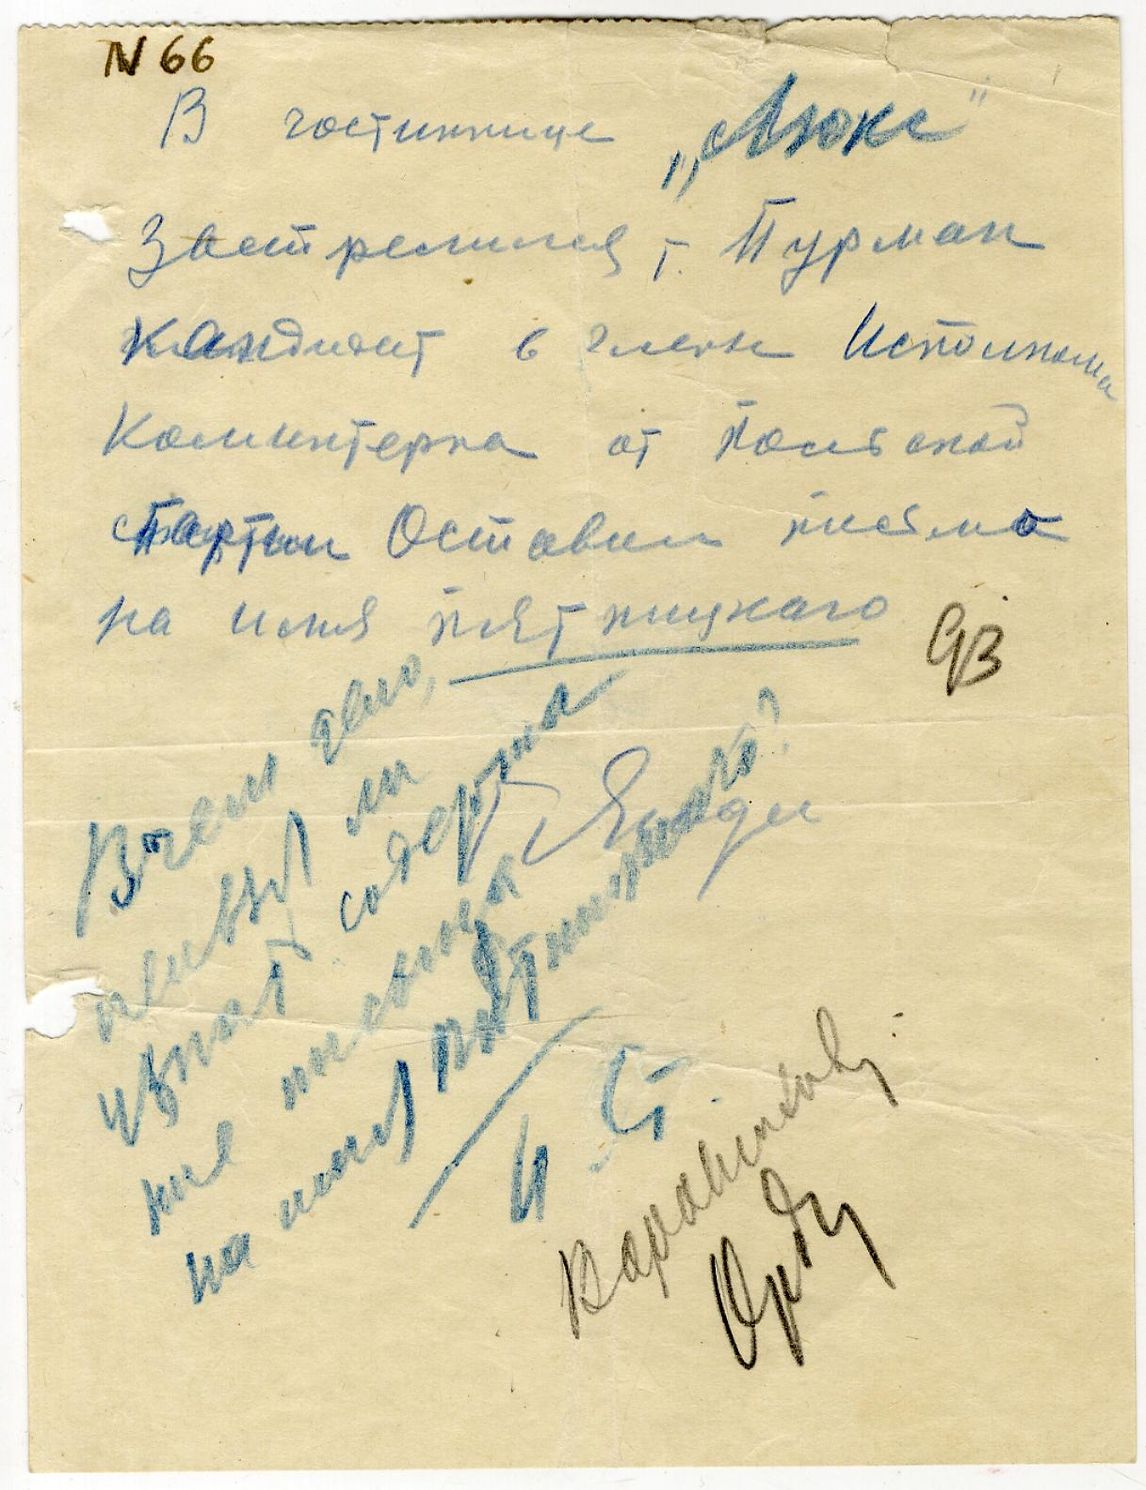 N 66
В гостиннице „Люкс"
Застрелился т. Пурман
Кандидат в члены Исполкома
Коминтерна от Польской
Партии Оставил письмо
на имя Пятницкаго
93
Г. Ягода
В чем дело,
нельзя ли
узнать содержа
ние письма
на имя Пятницкаго?
И Ст.
Ворошилов
Орд